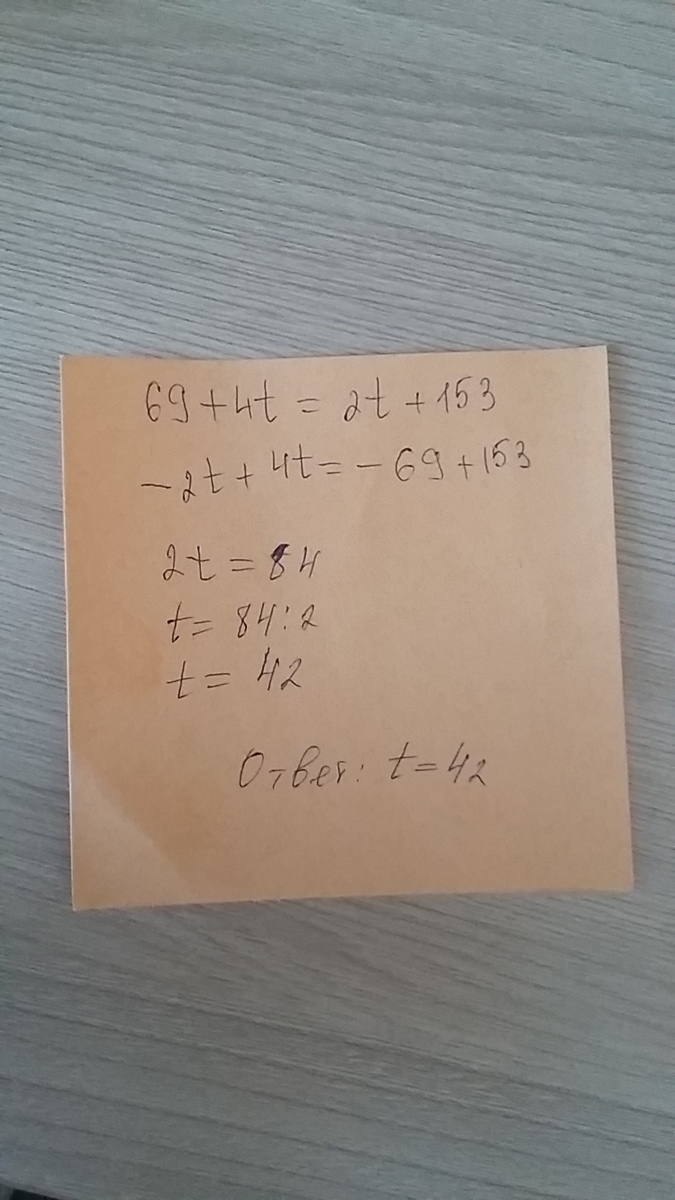 69+4t = 2t +153
-2t + 4t = - 69 +153
2t = 84
t = 84:2
t = 42
Ответ: t = 42